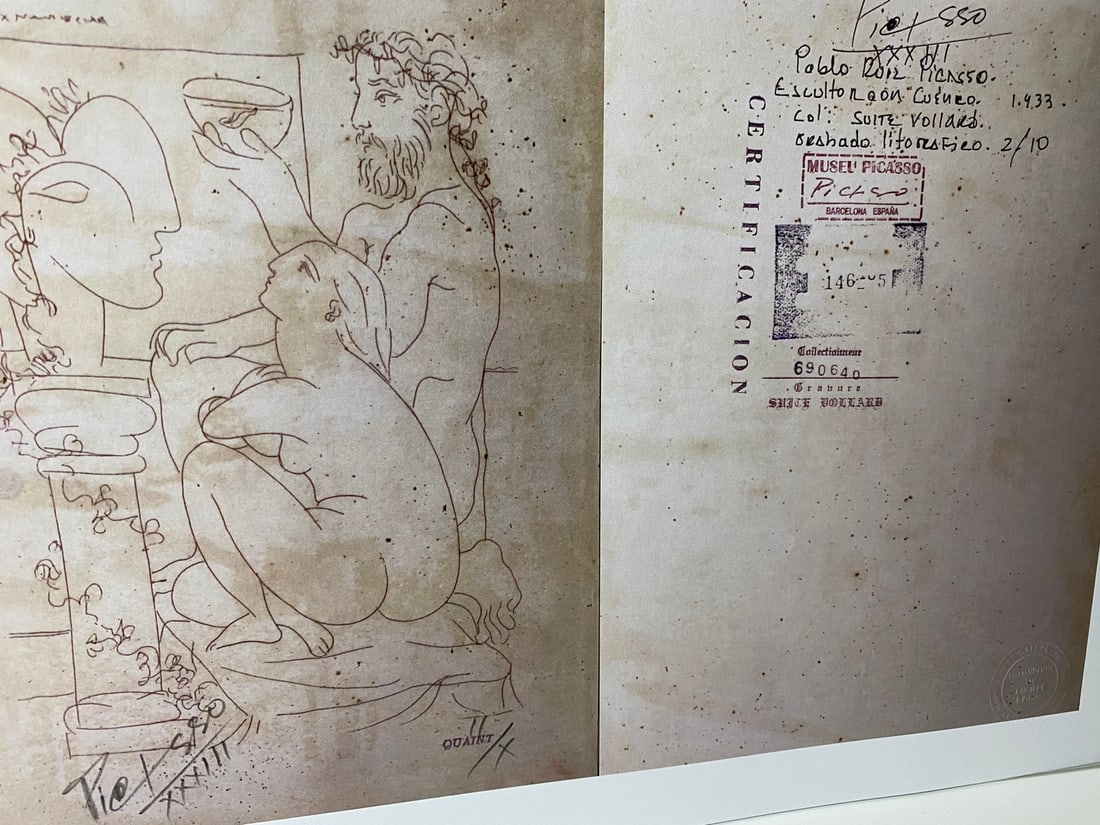 Picasso
XXXIII
Pablo Ruiz Picasso.
Escultor con Cuenco. 1.933.
Col: SUITE Vollard.
Grabado litografico. 2/10
CERTIFICACION
MUSEU PICASSO
Picasso
BARCELONA ESPAÑA
Collectionneur
690640
Gravure
SUITE VOLLARD
QUAINT
II/X
Picasso
XXXIII